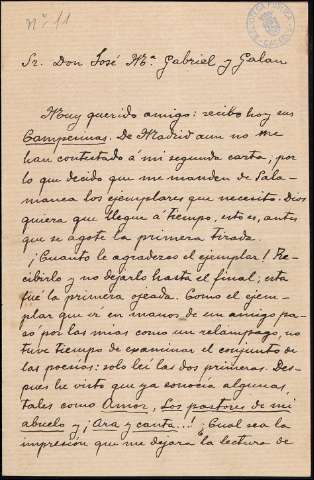 Nº 11
Sr. Don José Mª. Gabriel y Galan
Muy querido amigo: recibo hoy sus
Campesinas. De Madrid aun no me
han contestado á mi segunda carta; por
lo que decido que me manden de Sala-
manca los ejemplares que necesito. Dios
quiera que llegue á tiempo, esto es, antes
que se agote la primera tirada.
¡Cuanto le agradezco el ejemplar! Re-
cibirlo y no dejarlo hasta el final; esta
fué la primera ojeada. Como el ejem-
plar que vi en manos de un amigo pa-
só por las mias como un relampago, no
tuve tiempo de examinar el conjunto de
las poesias: solo lei las dos primeras. Des-
pués he visto que ya conocía algunas,
tales como Amor, Los pastores de mi
abuelo y ¡Ara y canta...! ¡Cual sea la
impresión que me dejara la lectura de